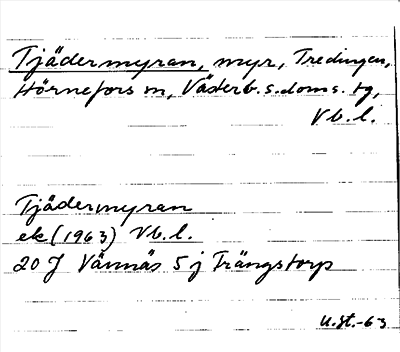 Tjädermyran, myr, Tredingen,
Hörnefors sn, Västerb. s. doms. tg,
Vb. l.
Tjädermyran
ek (1963) Vb. l.
20 J Vännäs 5 j Trängstorp
U.gt.-63